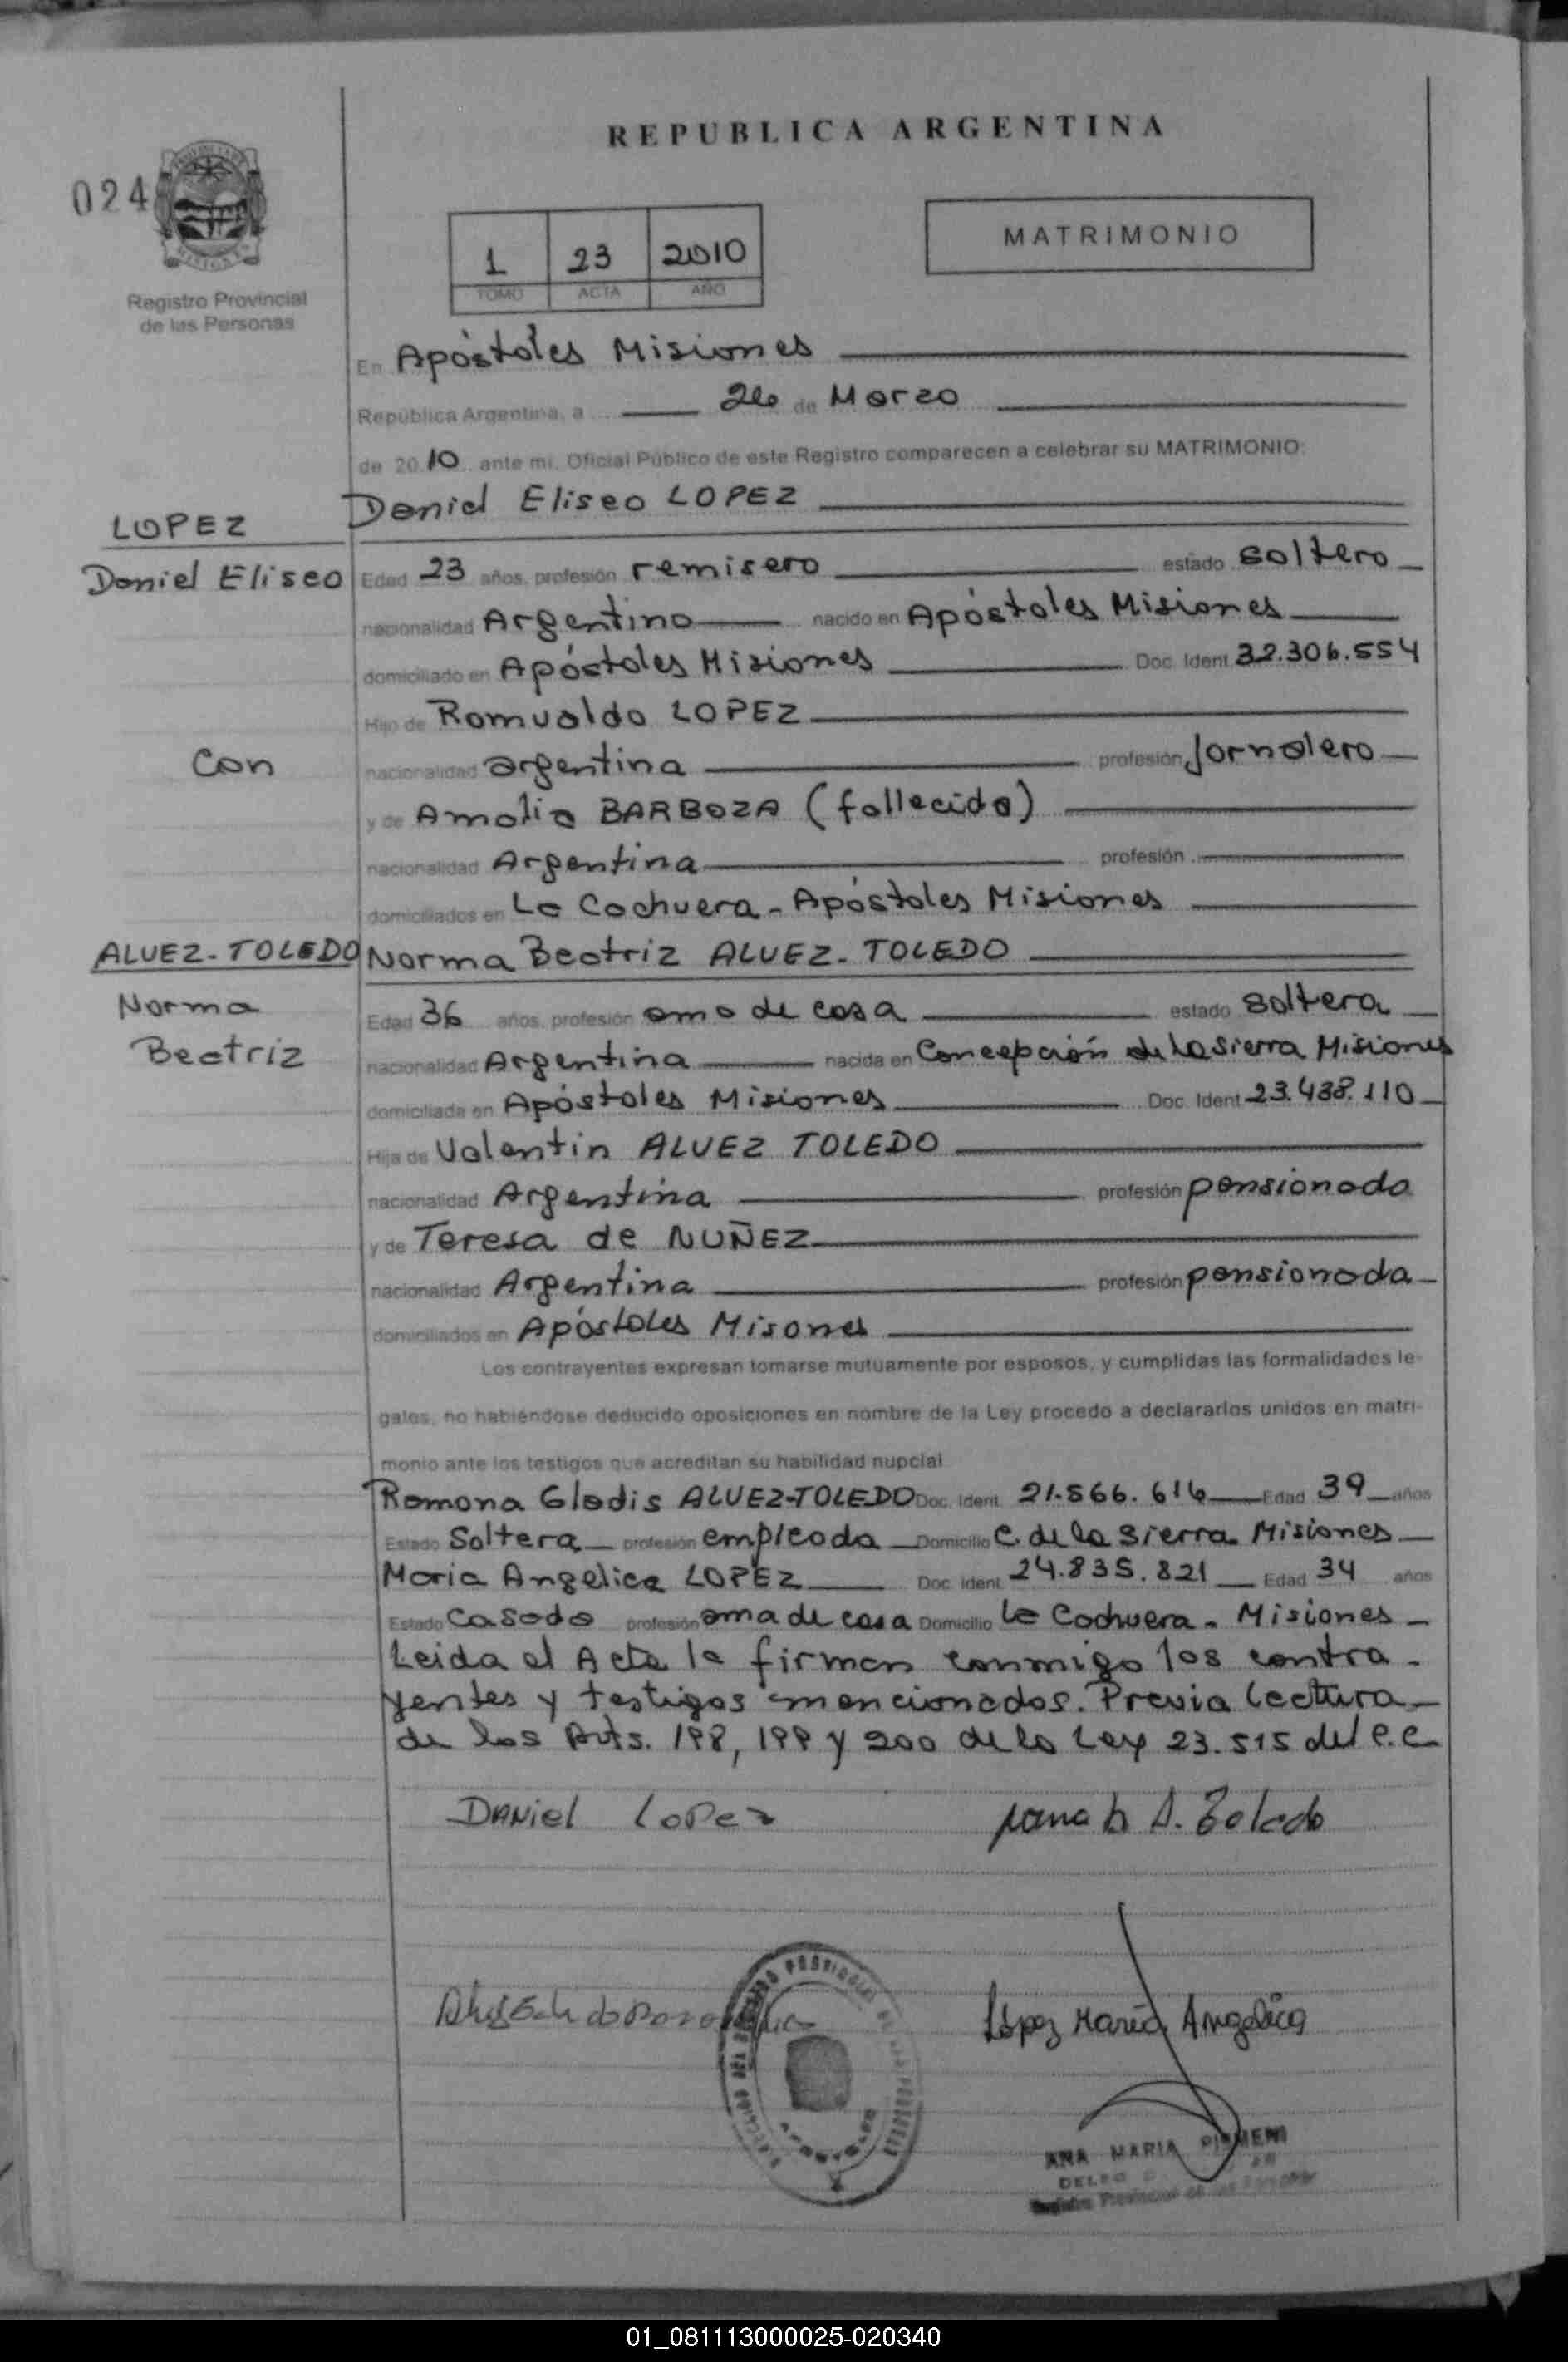 REPUBLICA ARGENTINA
024
MATRIMONIO
1 23 2010
TOMO ACTA AÑO
Registro Provincial
de las Personas
En Apóstoles Misiones
República Argentina, a 26 de Marzo
de 2010 ante mi, Oficial Público de este Registro comparecen a celebrar su MATRIMONIO:
Daniel Eliseo LOPEZ
LOPEZ
Daniel Eliseo
Edad 23 años, profesión remisero estado soltero
nacionalidad Argentino nacido en Apóstoles Misiones
domiciliado en Apóstoles Misiones Doc. Ident. 32.306.554
Hijo de Romualdo LOPEZ
Con
nacionalidad argentina profesión Jornalero
y de Amalia BARBOZA (fallecida)
nacionalidad Argentina profesión
domiciliados en La Cachuera - Apóstoles Misiones
ALUEZ-TOLEDO
Norma
Beatriz
Norma Beatriz ALUEZ-TOLEDO
Edad 36 años, profesión ama de casa estado soltera
nacionalidad Argentina nacida en Concepción de la Sierra Misiones
domiciliada en Apóstoles Misiones Doc. Ident. 23.438.110
Hija de Valentin ALUEZ TOLEDO
nacionalidad Argentina profesión pensionado
y de Teresa de NUÑEZ
nacionalidad Argentina profesión pensionada
domiciliados en Apóstoles Misones
Los contrayentes expresan tomarse mutuamente por esposos, y cumplidas las formalidades le-
gales, no habiéndose deducido oposiciones en nombre de la Ley procedo a declararlos unidos en matri-
monio ante los testigos que acreditan su habilidad nupcial
Ramona Gladis ALUEZ-TOLEDO Doc. Ident. 21.566.616 Edad 39 años
Estado Soltera profesión empleada Domicilio C. de la Sierra Misiones
Maria Angelica LOPEZ Doc. Ident. 24.835.821 Edad 34 años
Estado Casada profesión ama de casa Domicilio La Cachuera - Misiones
Leida el Acta la firman conmigo los contra-
yentes y testigos mencionados. Previa lectura
de los Arts. 198, 199 y 200 de la Ley 23.515 del C.C
DANIEL LOPEZ
A. Toledo
López María Angélica
ANA MARIA
Registro Provincial de las Personas
01_081113000025-020340